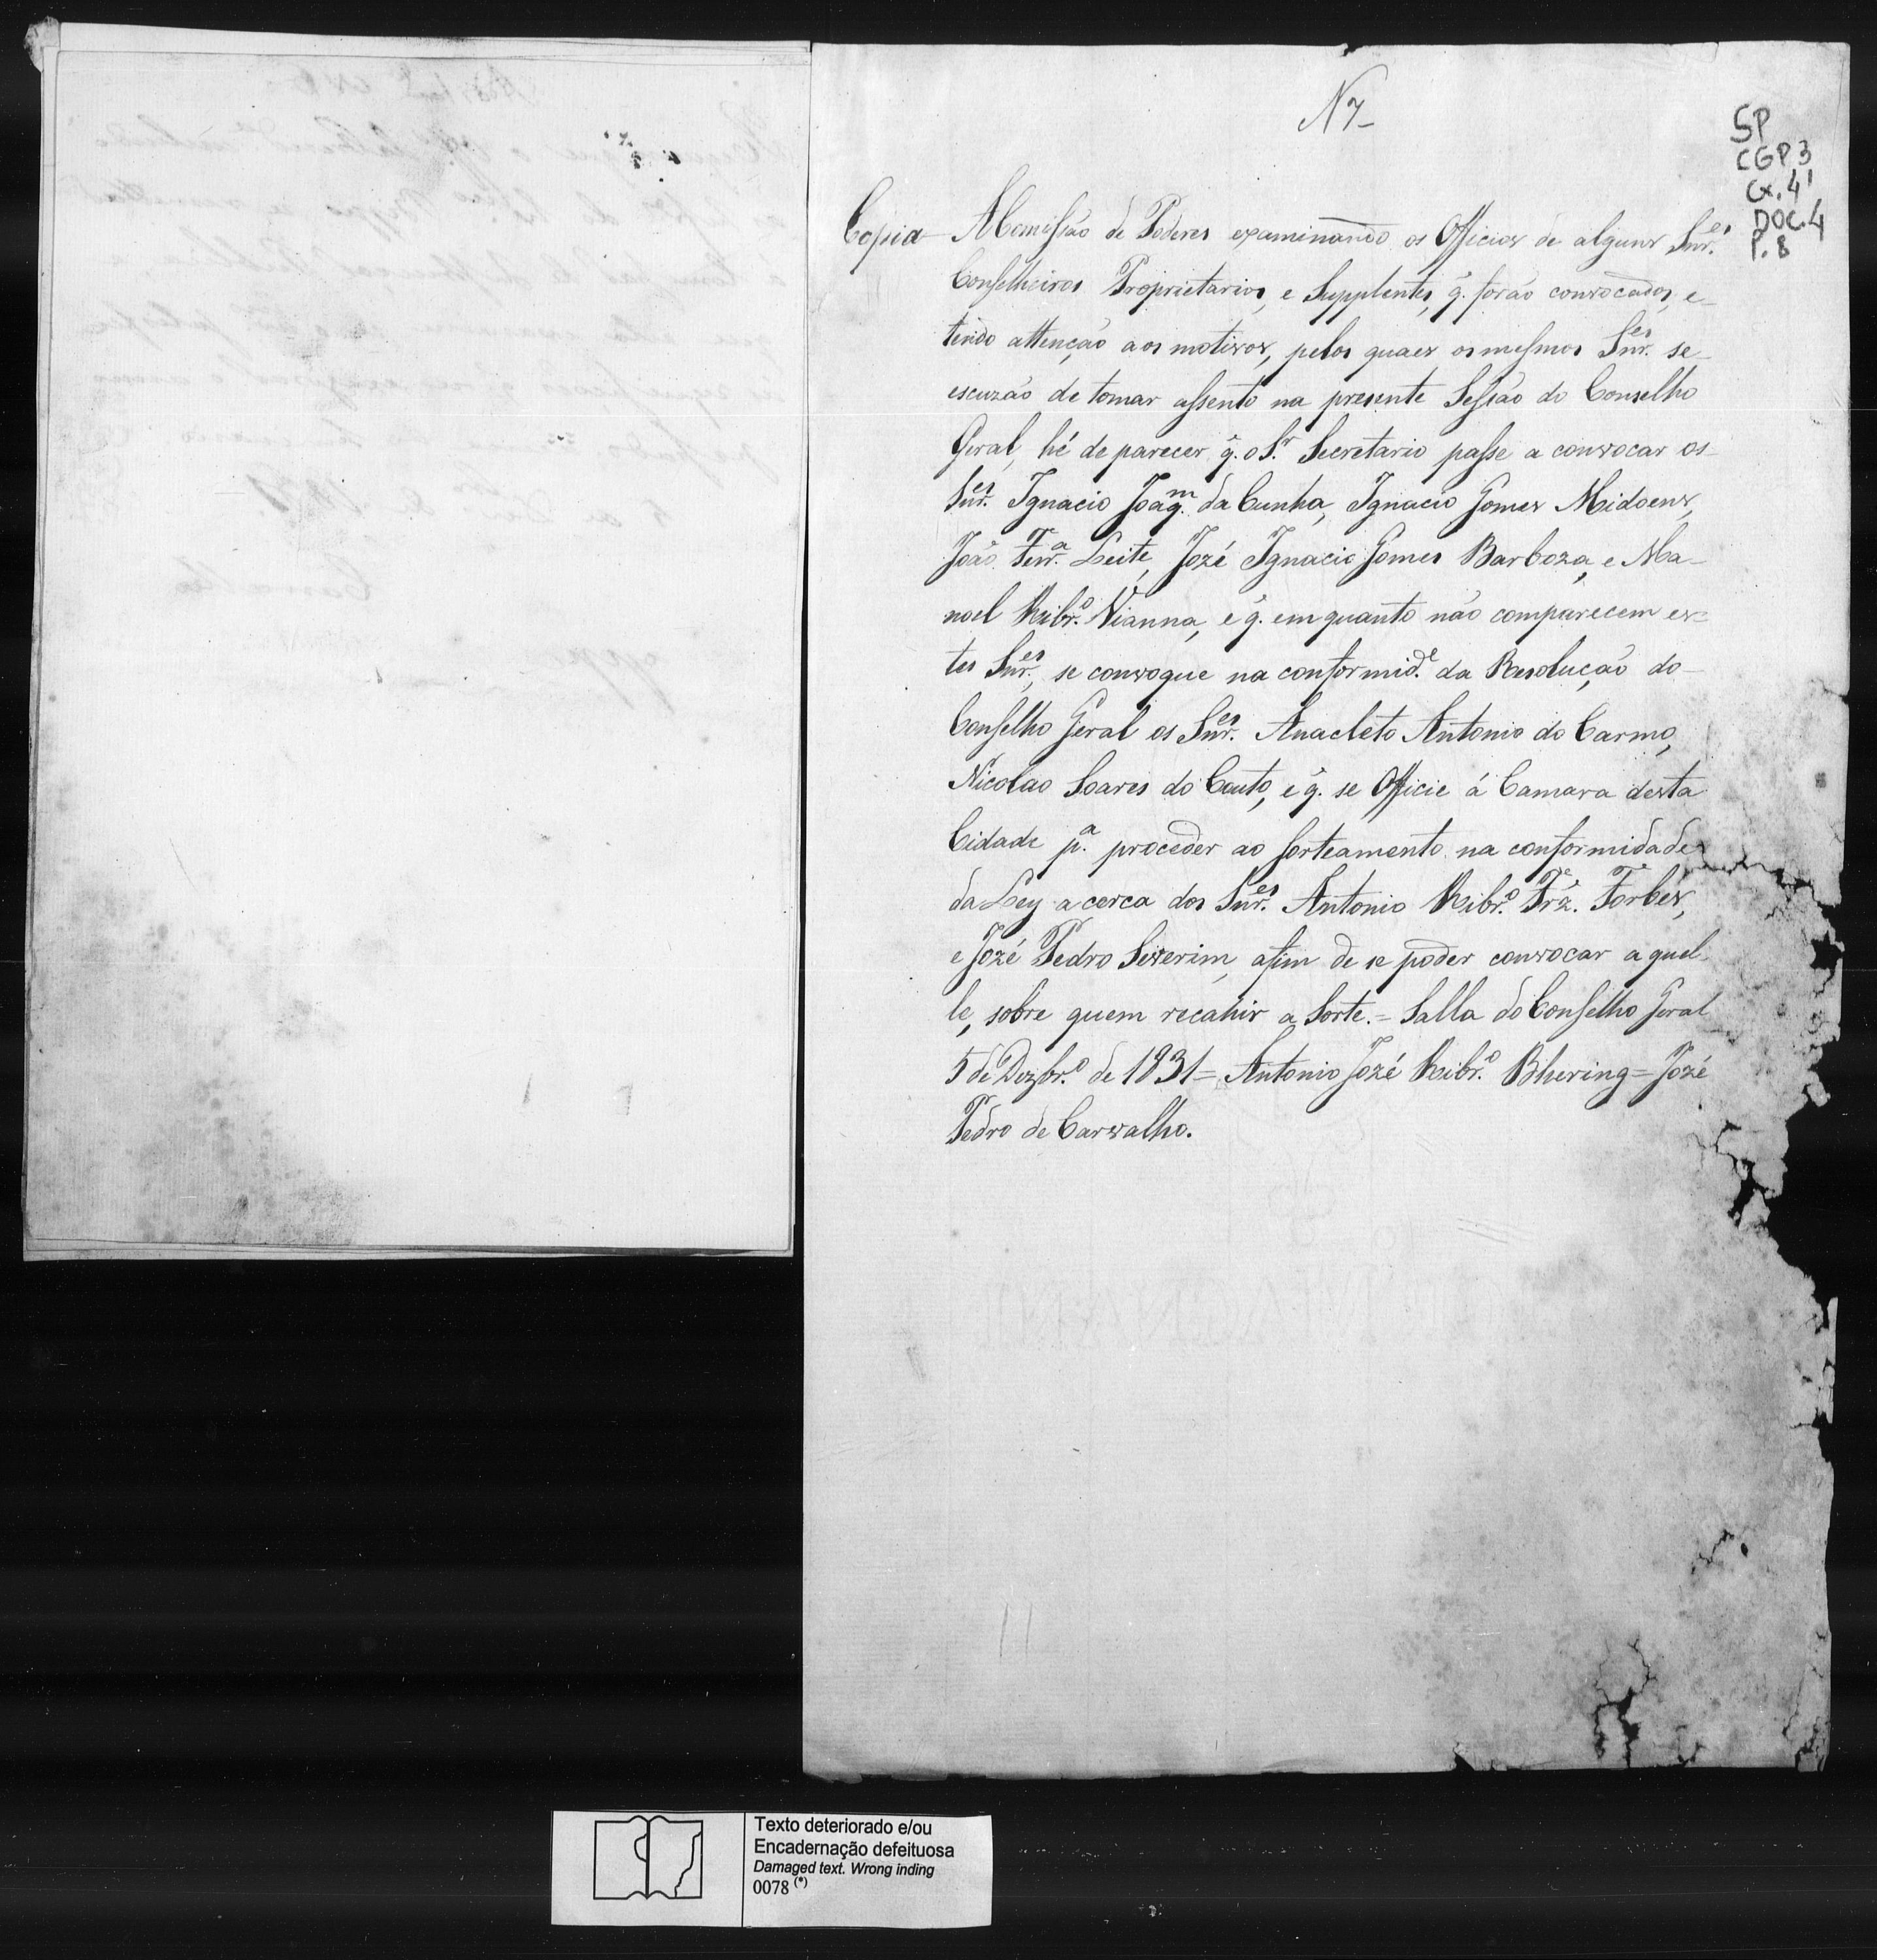 N 7
SP
CGP.3
Cx. 41
DOC. 4
P. 8
Copia A Comissão de Poderes examinando os Officios de alguns Snr.es
Conselheiros Proprietarios, e Supplentes, q̃. forão convocados, e
tendo attenção aos motivos, pelos quaes os mesmos Snr.es se
escuzão de tomar assento na prezente Sessão do Conselho
Geral, hé de parecer q̃. o S.r Secretario passe a convocar os
Snr.es Ignacio Joaq.m da Cunha, Ignacio Gomes Midoens,
João Ferr.a Leite, Jozé Ignacio Gomes Barboza, e Ma-
noel Ribr.o Vianna, e q̃. em quanto não comparecem es-
tes Snr.es, se convoque na conformid.e da Resolução do
Conselho Geral os Snr.es Anacleto Antonio do Carmo,
Nicolao Soares do Couto, e q̃. se Officie á Camara desta
Cidade p.a proceder ao sorteamento na conformidade
da Ley a cerca dos Snr.es Antonio Ribr.o Frz. Forbes,
e Jozé Pedro Severim, afim de se poder convocar aquel-
le, sobre quem recahir a Sorte. = Salla do Conselho Geral
5 de Dezbr.o de 1831 = Antonio Jozé Ribr.o Bhering = Jozé
Pedro de Carvalho.
Texto deteriorado e/ou
Encadernação defeituosa
Damaged text. Wrong inding
0078 (*)